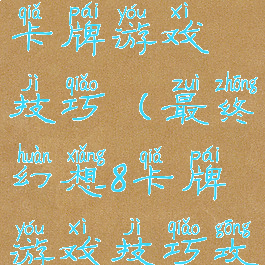 qiǎ pái yóu xì
卡牌游戏
jì qiǎo zuì zhōng
技巧（最终
huàn xiǎng qiǎ pái
幻想8卡牌
yóu xì jì qiǎo gōng
游戏技巧攻